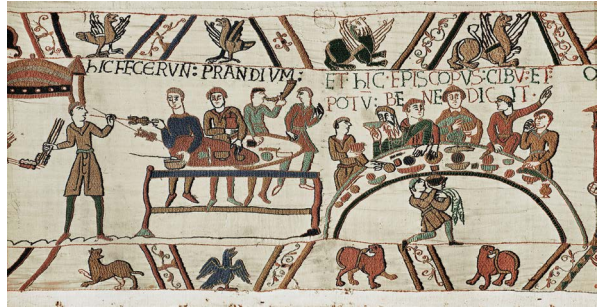 hIC FECERVN: PRANDIVM:
ET·hIC·EPISCOPVS:CIBV:ET:
POTV: BE NE DIC IT·
O